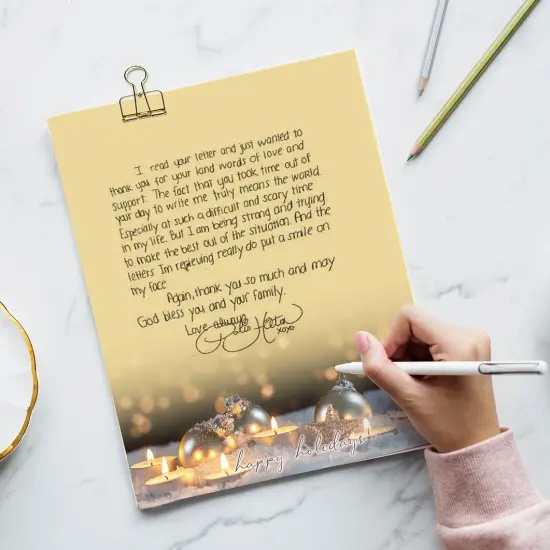 I read your letter and just wanted to
thank you for your kind words of love and
support. The fact that you took time out of
your day to write me truly means the world.
Especially at such a difficult and scary time
in my life. But I am being strong and trying
to make the best out of the situation. And the
letters Im recieving really do put a smile on
my face
Again, thank you so much and may
God bless you and your family.
Love always
xoxo
happy holidays!